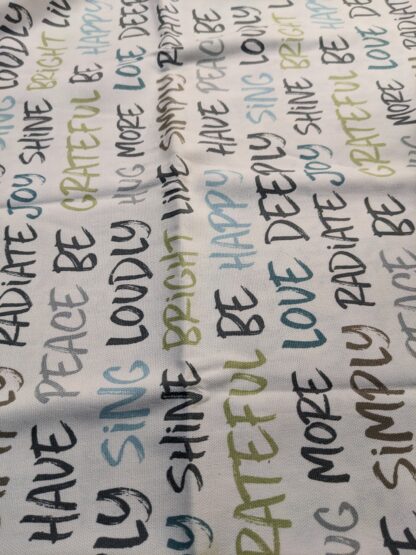 SING LOUDLY
RADIATE JOY SHINE BRIGHT
HAVE PEACE BE GRATEFUL BE HAPPY
LY SING LOUDLY HUG MORE LOVE DEEP
Y SHINE BRIGHT LIVE SIMPLY RADIATE
RATEFUL BE HAPPY HAVE PEACE BE
UG MORE LOVE DEEPLY SING LOUDLY
E SIMPLY RADIATE JOY SHINE BRIGHT
PEACE BE GRATEFUL BE HAPPY
HUG MORE LOVE DEE
RADIATE